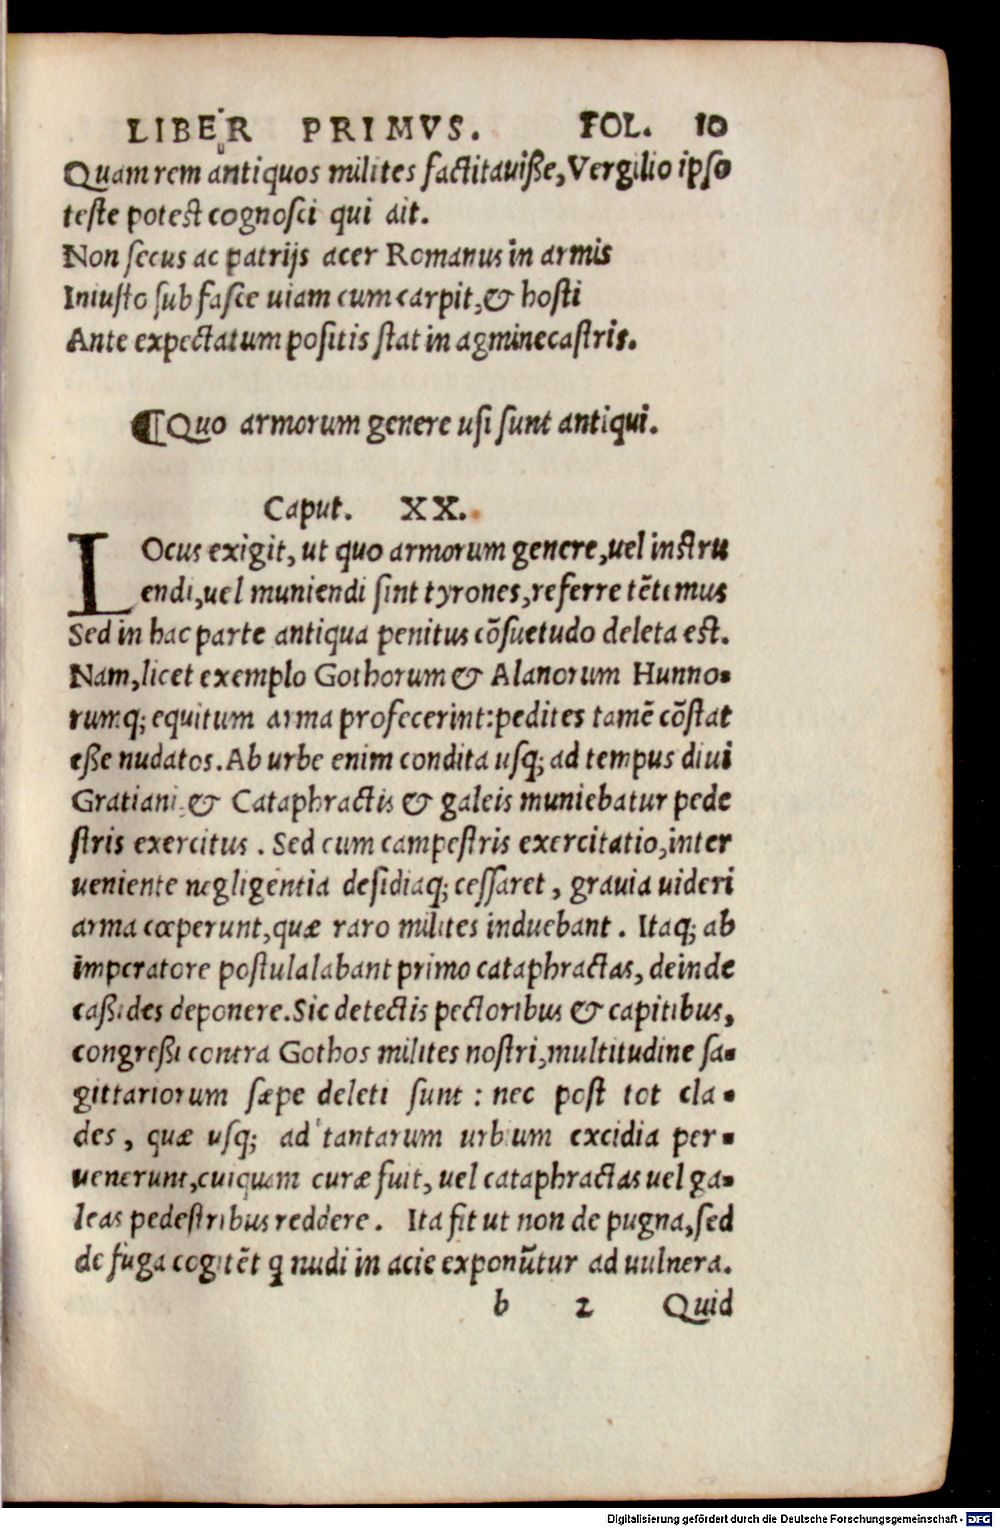 LIBER PRIMVS. FOL. 10
Quam rem antiquos milites factitauiſſe, Vergilio ipſo
teſte poteſt cognoſci qui ait.
Non ſecus ac patrijs acer Romanus in armis
Iniuſto ſub faſce uiam cum carpit, & hoſti
Ante expectatum poſitis ſtat in agmine caſtris.
¶Quo armorum genere uſi ſunt antiqui.
Caput. XX.
LOcus exigit, ut quo armorum genere, uel inſtru
endi, uel muniendi ſint tyrones, referre tētemus
Sed in hac parte antiqua penitus cōſuetudo deleta eſt.
Nam, licet exemplo Gothorum & Alanorum Hunno-
rumq; equitum arma profecerint: pedites tamē cōſtat
eſſe nudatos. Ab urbe enim condita uſq; ad tempus diui
Gratiani & Cataphractis & galeis muniebatur pede
ſtris exercitus. Sed cum campeſtris exercitatio, inter
ueniente negligentia deſidiaq; ceſſaret, grauia uideri
arma cœperunt, quæ raro milites induebant. Itaq; ab
imperatore poſtulalabant primo cataphractas, deinde
caſſides deponere. Sic detectis pectoribus & capitibus,
congreſſi contra Gothos milites noſtri, multitudine ſa-
gittariorum ſæpe deleti ſunt: nec poſt tot cla-
des, quæ uſq; ad tantarum urbium excidia per-
uenerunt, cuiquam curæ fuit, uel cataphractas uel ga-
leas pedeſtribus reddere. Ita fit ut non de pugna, ſed
de fuga cogitēt q nudi in acie exponūtur ad uulnera.
b 2 Quid
Digitalisierung gefördert durch die Deutsche Forschungsgemeinschaft - DFG